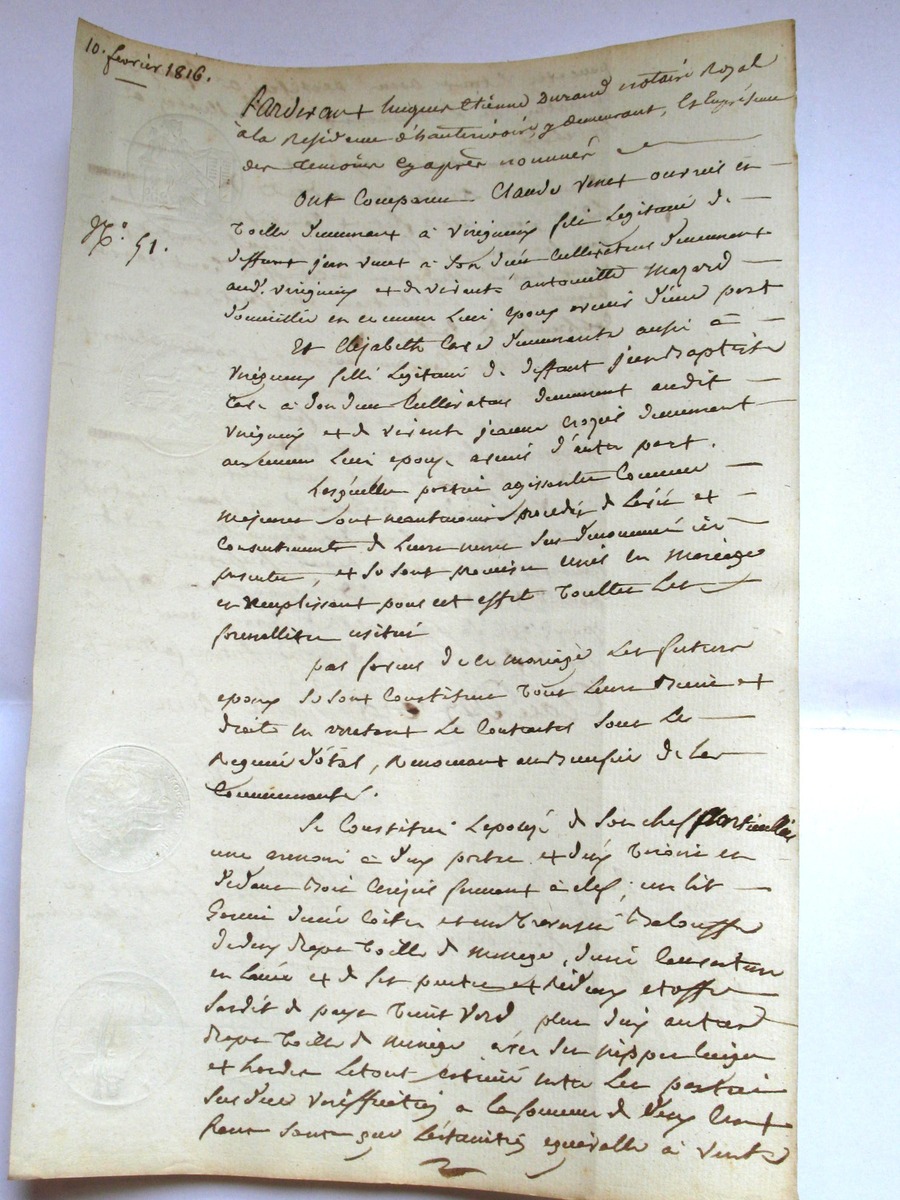 10. fevrier 1816.
Pardevant hugues Etienne Durand notaire Royal
à la Residence d'hauterivoire, y demeurant, Et En présence
des temoins cy après nommés
N.° 51.
Ont Comparu Claude Vinet ouvrier en
toille demeurant à Virigneux fils Legitime de
deffunt jean Vinet à son vivant Cultivateur demeurant
aud. Virigneux et de vivante antoinette Mazard
domiciliée en ce meme Lieu epoux avenir d'une part
Et Elizabeth demeurante aussi à
Virigneux fille Legitime de deffunt jean Baptiste
à son Cultivateur demeurant audit
Virigneux et de vivante jeanne demeurant
au meme Lieu epouse avenir d'autre part.
Lesquelles parties agissantes Comme
majeures sont neantmoins procedés de L'avis et
Consentement de Leurs meres sus denommées ici
presentes, et se sont promises unies en mariage
en remplissant pour cet effet toutes Les
formallités usités
par forme de ce mariage Les futurs
epoux se sont Constitués tous Leurs Biens et
droits en arretant Le Contracter sous Le
Regime dotal, Renoncant au Benefice de La
Communauté.
Se Constitue L'epouse de son chef particullier
une armoire à deux portes et deux tiroirs en
dedans Bois Cerisier fermant à clef, un lit
Garni d'une Coitre et un Traversin Balouffe
de deux draps toille de menage, d'une Couverture
en Laine et de ses pentes et Rideaux etoffe
sardit de pays teint Verd, plus six autres
draps toille de menage avec ses nippes Linges
et hardes Le tout estimé entre Les parties
sur due verification a la somme de deux Cent
francs sans que L'estimation equivalle à vente